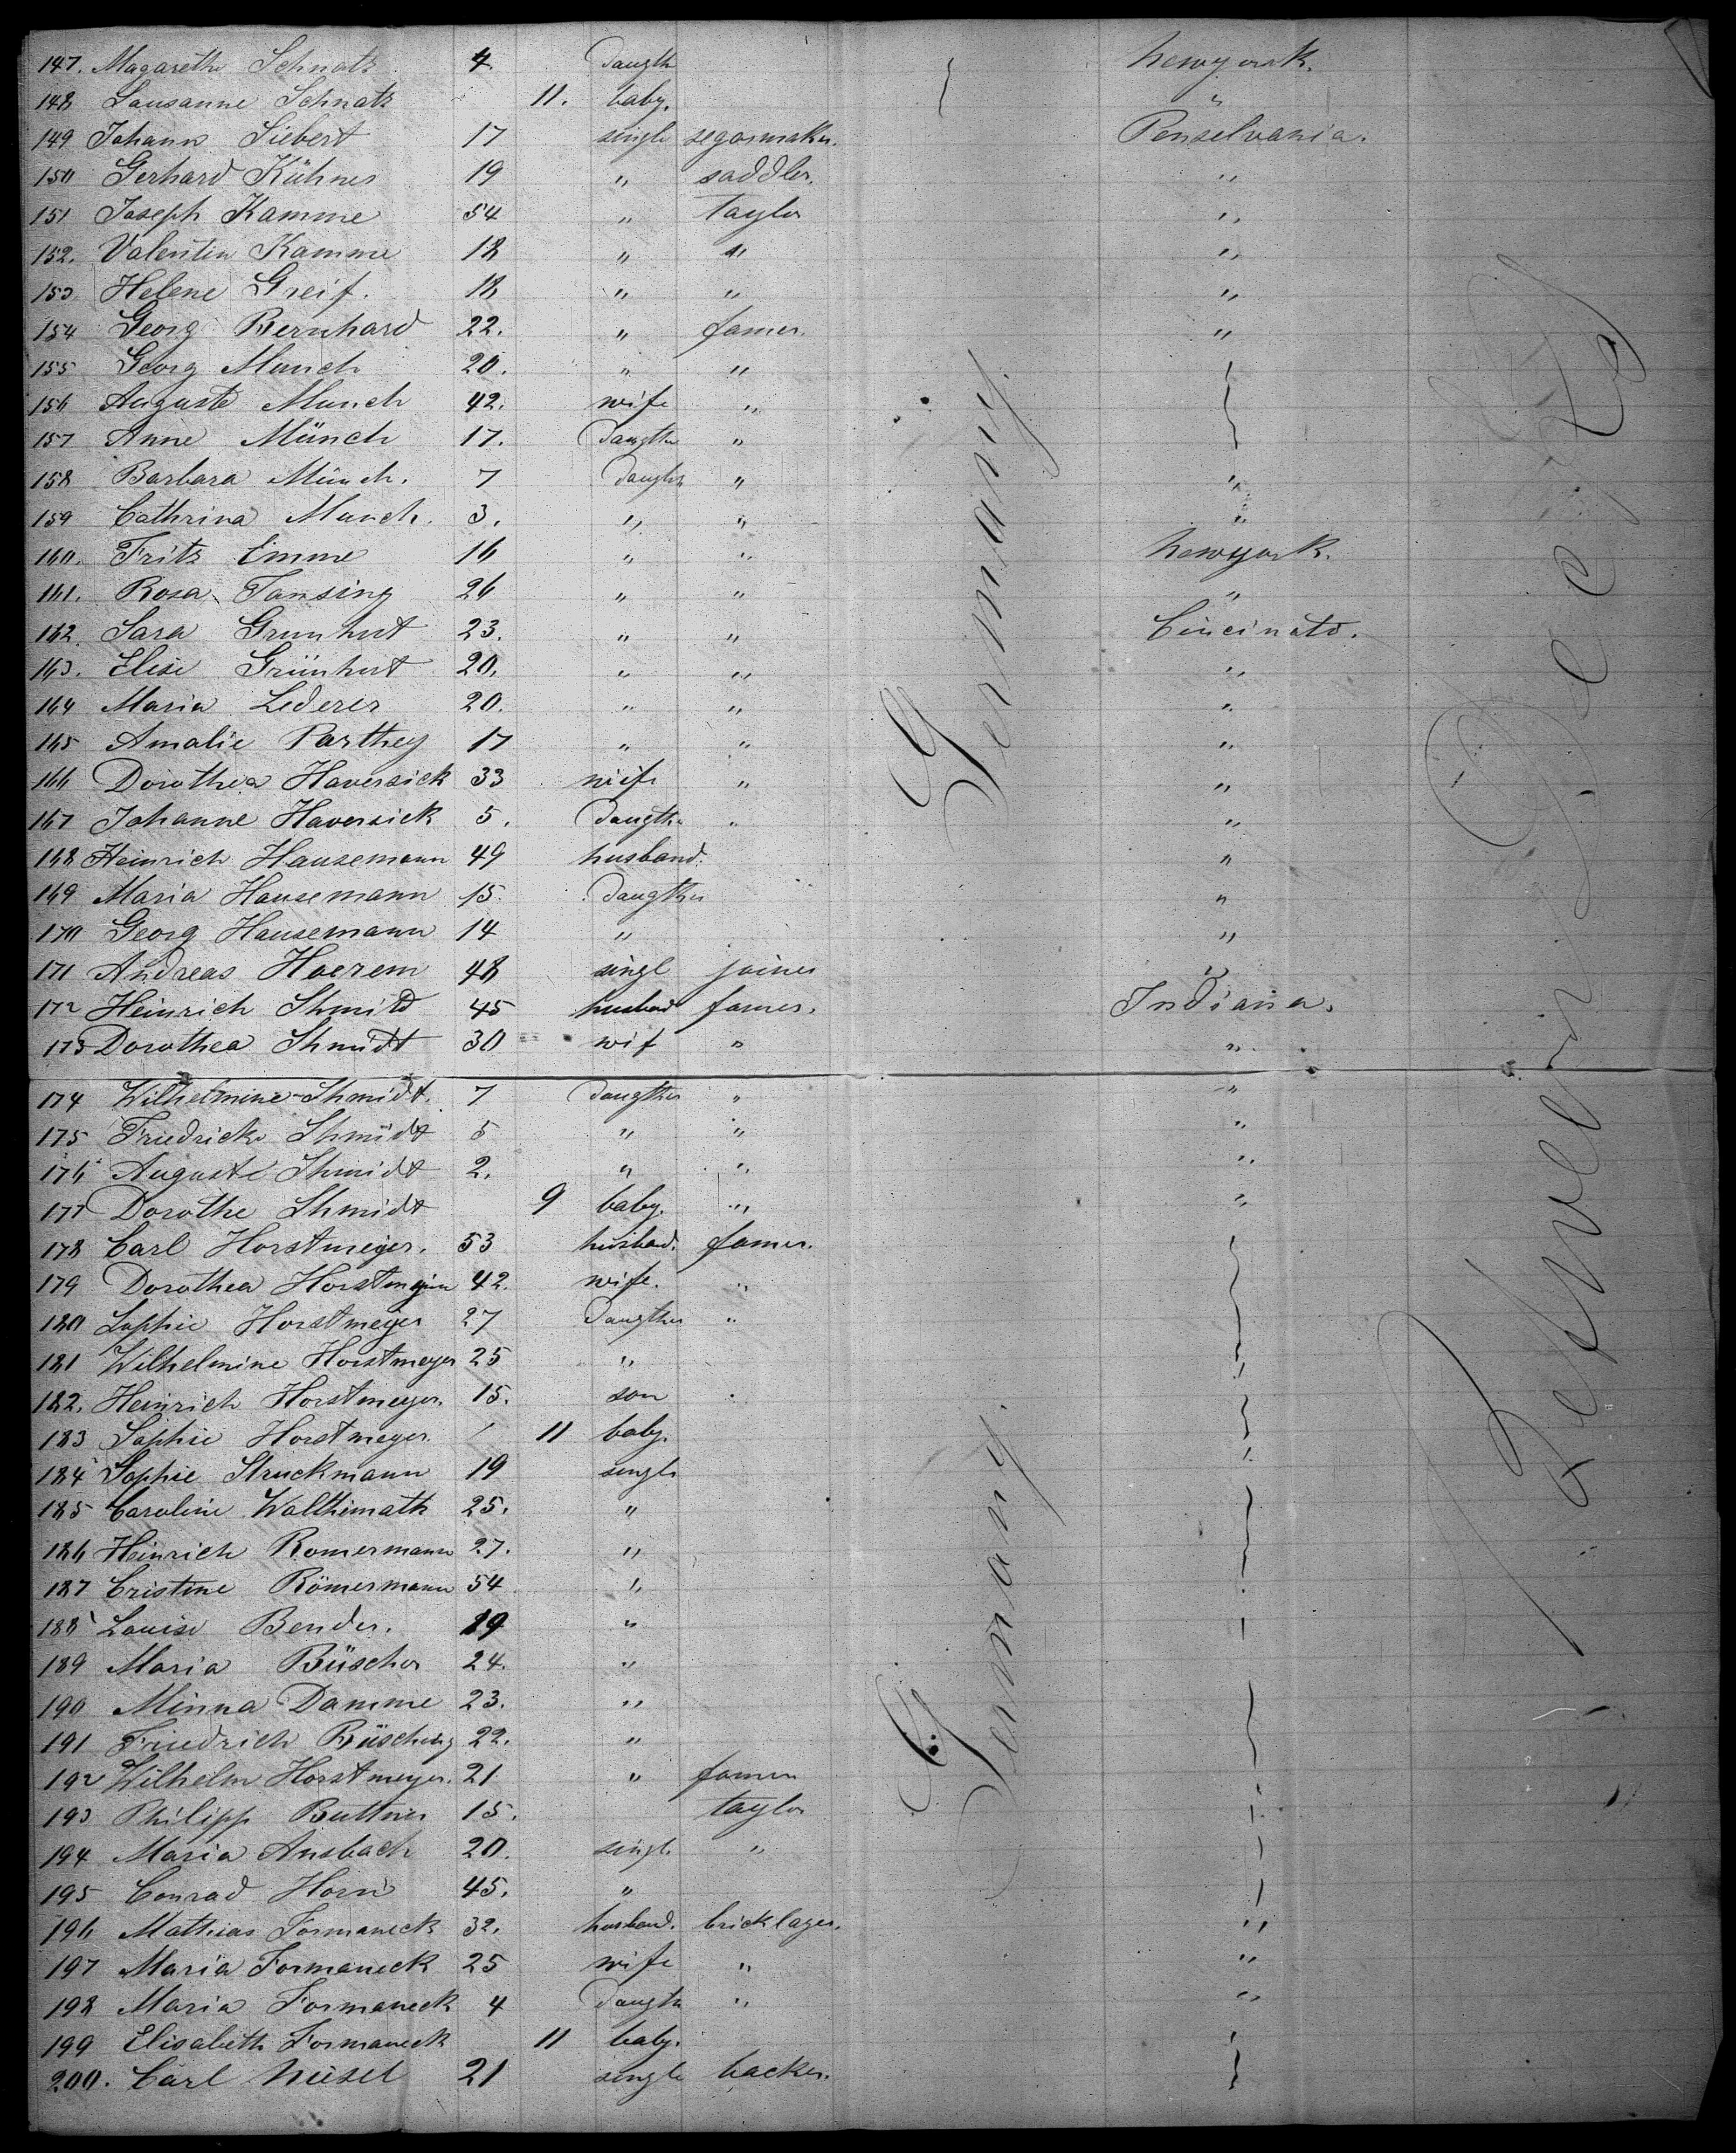 147. Magarethe Schnatz 4. Daugth Newyork.
148 Sausanne Schnatz 11. baby. "
149 Johann Siebert 17 single segarmaker. Penselvania.
150 Gerhard Kühner 19 " saddler. "
151 Joseph Kamme 54 " Taylor "
152. Valentin Kamme 18 " " "
153 Helene Greif. 18 " " "
154 Georg Bernhard 22. " famer. "
155 Georg Munch 20. " "
156 Auguste Munch 42. wife "
157 Anne Münch 17. Daugthe "
158 Barbara Münch. 7 Daughte " "
159 Cathrina Munch. 3. " " "
160. Fritz Emme 16 " " Newyork.
161. Rosa Tansing 26 " " "
162 Sara Grunhut 23. " " Cincinato.
163. Elise Grünhut 20. " " "
164 Maria Lederer 20. " " "
165 Amalie Parthey 17 " " "
166 Dorothea Haversick 33 wife " "
167 Johanne Haversick 5. Daugthe " "
168 Heinrich Hausemann 49 husband. "
169 Maria Hausemann 15. Daugther "
170 Georg Hausemann 14 " "
171 Andreas Hoerem 48 singl joiner "
172 Heinrich Shmitd 45 husband famer. Indiana.
173 Dorothea Shmidt 30 wif " "
174 Wilhelmine Shmidt. 7 Daugther " "
175 Friedricke Shmidt 5 " " "
176 Auguste Shmidt 2. " " "
177 Dorothe Shmidt 9 baby. " "
178 Carl Horstmeyer. 53 husbad. famer.
179 Dorothea Horstmeyer 42. wife. "
180 Sophie Horstmeyer 27 Daugther "
181 Wilhelmine Horstmeyer 25 " "
182. Heinrich Horstmeyer. 15. son
183 Sophie Horstmeyer. 11 baby.
184 Sophie Struckmann 19 single
185 Caroline Walthimath 25. "
186 Heinrich Romermann 27. "
187 Cristine Römermann 54 "
188 Louise Bender. 19 "
189 Maria Büscher 24. "
190 Minna Damme 23. "
191 Friedrich Büsching 22. "
192 Wilhelm Horstmeyer. 21 " famer
193 Philipp Buttner 15. taylor
194 Maria Ansbach 20. singl. "
195 Conrad Horn 45. "
196 Mathias Formaneck 32. husband. bricklayer. "
197 Maria Formaneck 25 wife " "
198 Maria Formaneck 4 Daugth " "
199 Elisabeth Formaneck 11 baby.
200. Carl Nüsel 21 single backer.
Germany.
Germany.